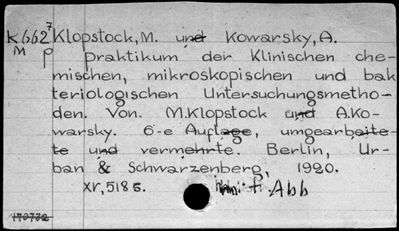 K662⁷ Klopstock, M. und Kowarsky, A.
M p praktikum der Klinischen che-
mischen, mikroskopischen und bak
teriologischen Untersuchungsmetho-
den. Von. M.Klopstock und A.Ko-
warsky. 6-e Auflage, umgearbeite-
te und vermehrte. Berlin, Ur-
ban & Schwarzenberg, 1920.
XV, 518 S. mit. f. Abb